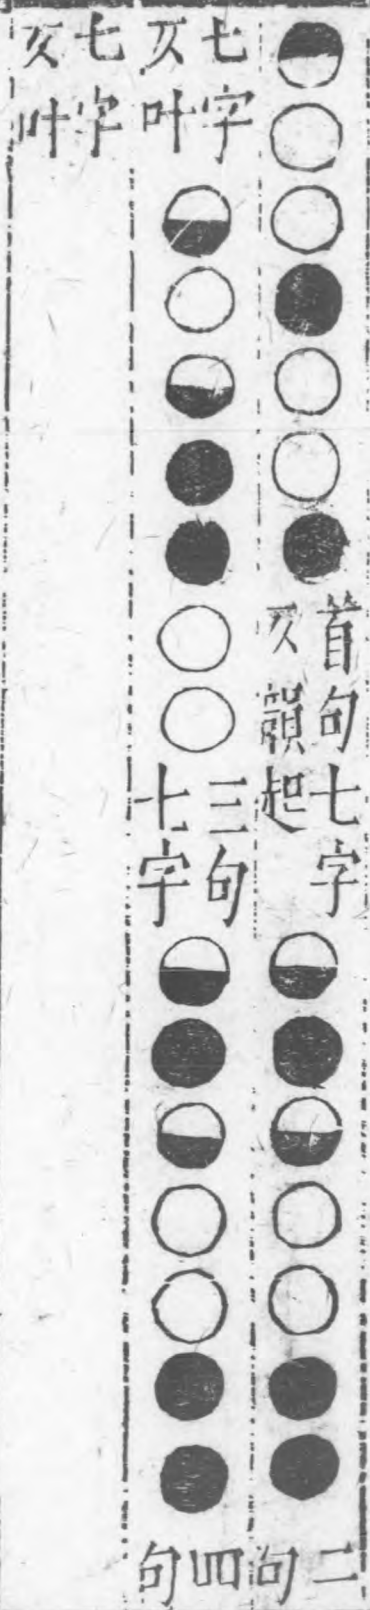 首句七字
仄韻起
二句
七字
仄叶
三句
七字
四句
七字
仄叶